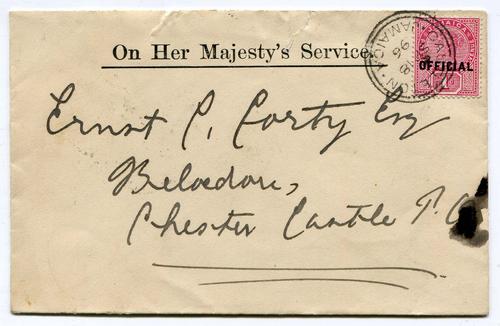 On Her Majesty's Service.
JAMAICA
OFFICIAL
JAMAICA
96
Ernst C. Corty Esq
Belvedere,
Chester Castle P.O.